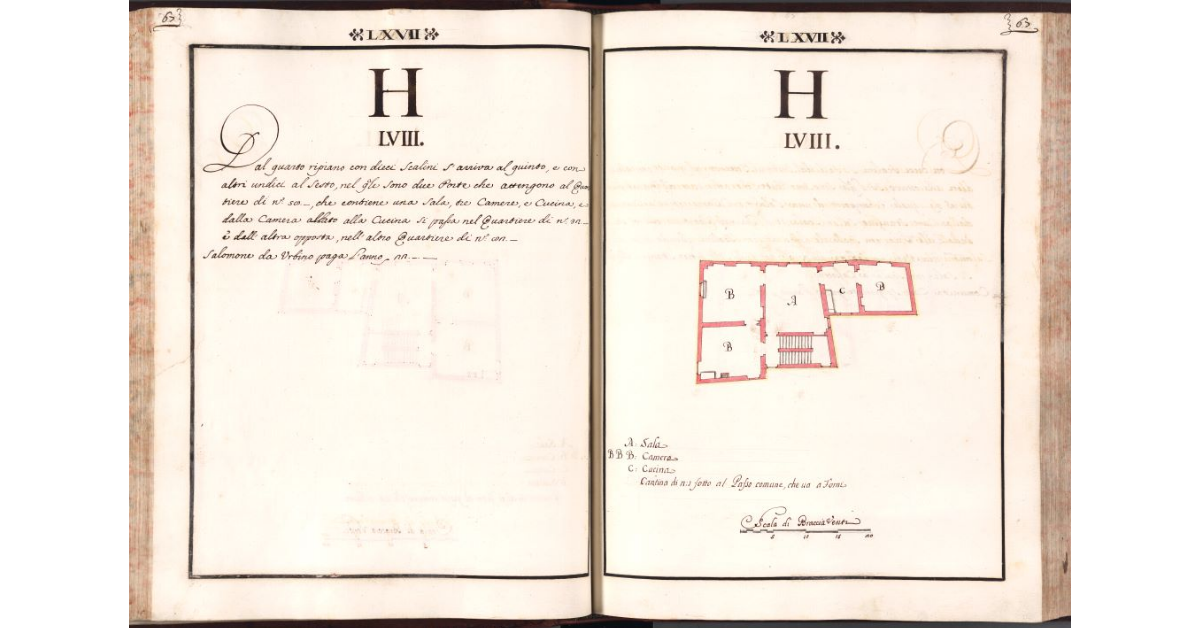 63
LXVII
H
LVIII.
Dal quarto ripiano con dieci Scalini s' arriva al quinto, e con
altri undici al Sesto, nel qle sono due Porte che attengono al Quar
tiere di n.º 50_, che contiene una Sala, tre Camere, e Cucina, e
dalla Camera allato alla Cucina si passa nel Quartiere di n.º
è dall' altra opposta, nell' altro Quartiere di n.º
Salomone da Urbino paga l'anno
63
LXVII
H
LVIII.
B
A
C
B
B
A: Sala
B B B: Camera
C: Cucina
Cantina di n:1 sotto al Passo comune, che va a Forni
Scala di Braccia Venti
5 10 15 20